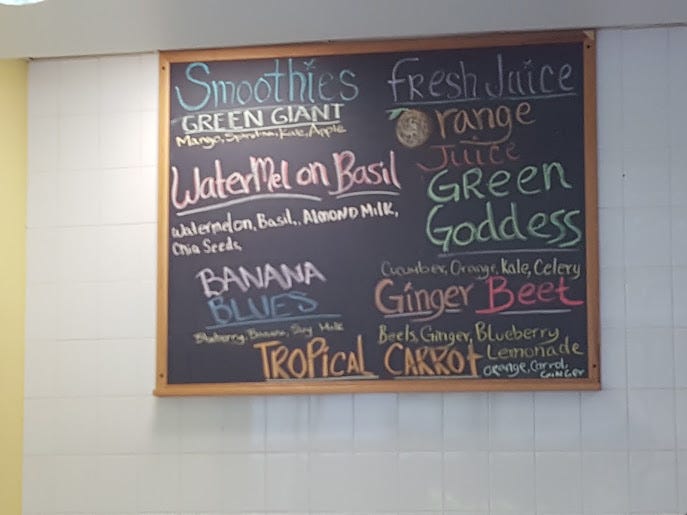 Smoothies
GREEN GIANT
Mango, Spirulina, Kale, Apple
WaterMelon Basil
Watermelon, Basil, Almond Milk,
Chia Seeds,
BANANA
BLUES
Blueberry, Banana, Soy Milk
fresh Juice
Orange
Juice
GREEN
Goddess
Cucumber, Orange, Kale, Celery
Ginger Beet
Beets, Ginger, Blueberry
Lemonade
TROPICAL CARROT
Orange, Carrot,
GINGER